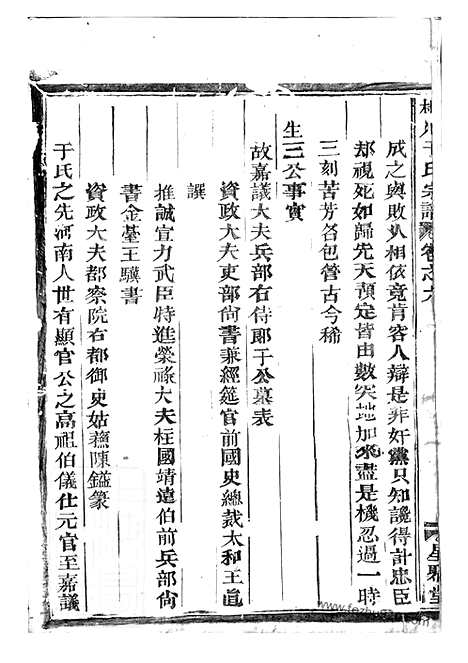 于氏宗譜 卷之六
成之與敗人相依竟肯容人辯是非奸黨只知讒得計忠臣
却視死如歸先天預定皆由數突地加來盡是機忍過一時
三刻苦芳名包管古今稀
生三公事實
故嘉議大夫兵部右侍郎于公墓表
資政大夫吏部尚書兼經筵官前國史總裁太和王直
譔
推誠宣力武臣特進榮祿大夫柱國靖遠伯前兵部尚
書金臺王驥書
資政大夫都察院右都御史姑蘇陳鎰篆
于氏之先河南人世有顯官公之高祖伯儀仕元官至嘉議
堂